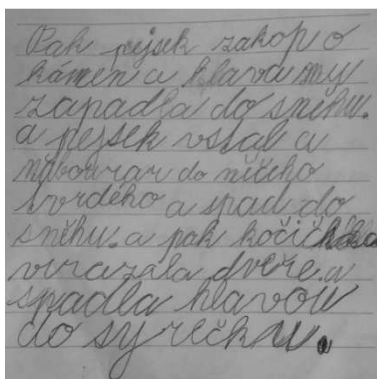 Pak pejsek zakop o
kámen a hlava mu
zapadla do sněhu.
a pejsek vstal a
naboural do něčeho
tvrdého a spad do
sněhu. a pak kočička
vrazala dveře a
spadla hlavou
do syrečku.